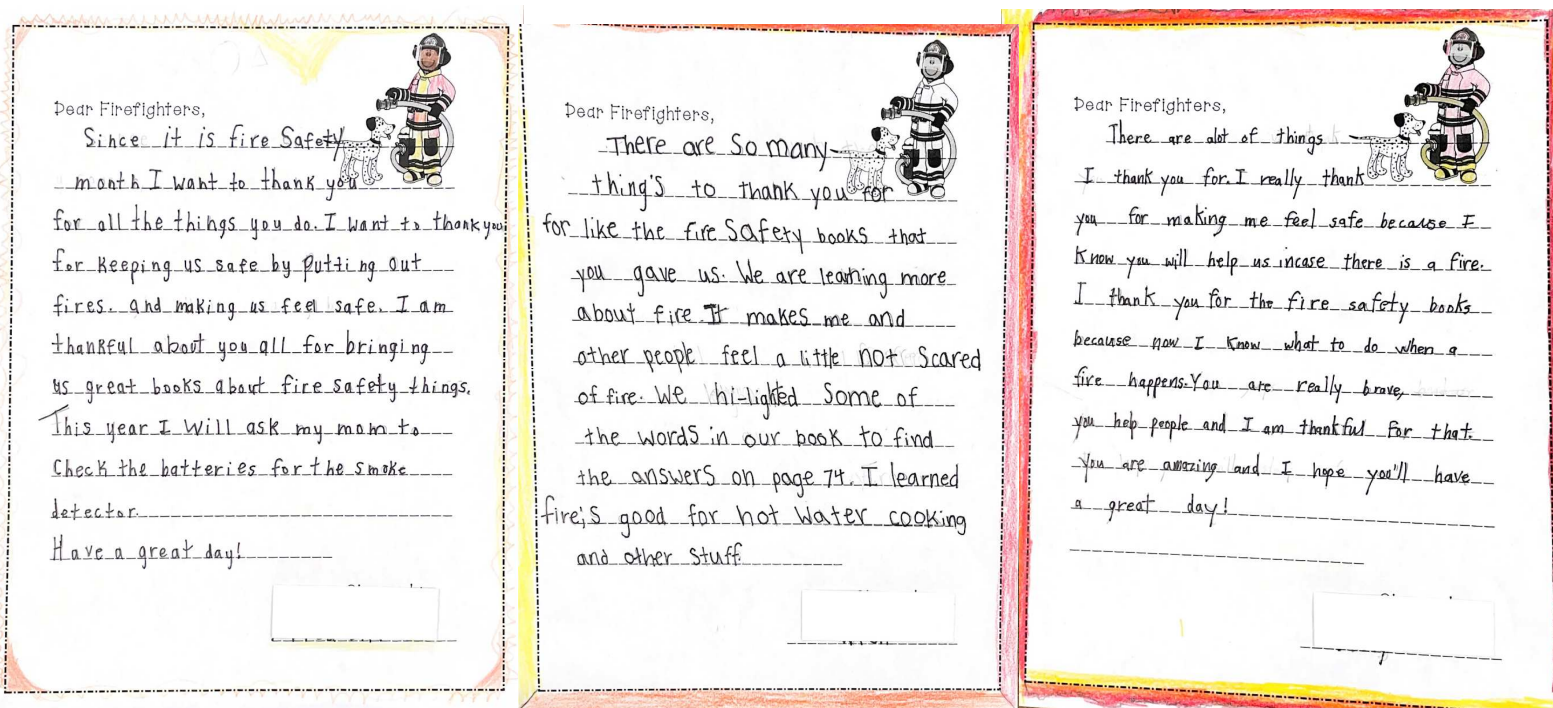 Dear Firefighters,
Since it is fire Safety
month I want to thank you
for all the things you do. I want to thank you
for keeping us safe by putting out
fires. and making us feel safe. I am
thankful about you all for bringing
us great books about fire safety things.
This year I will ask my mom to
check the batteries for the smoke
detector
Have a great day!
Dear Firefighters,
There are so many
thing's to thank you for
for like the fire Safety books that
you gave us. We are learning more
about fire It makes me and
other people feel a little not scared
of fire. We hi-lighted Some of
the words in our book to find
the answers on page 74. I learned
fire;s good for hot water cooking
and other stuff
Dear Firefighters,
There are alot of things
I thank you for. I really thank
you for making me feel safe because I
know you will help us incase there is a fire.
I thank you for the fire safety books
because now I know what to do when a
fire happens. You are really brave,
you help people and I am thankful for that.
You are amazing and I hope you'll have
a great day!